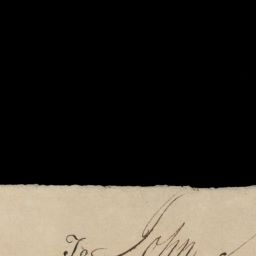 To John